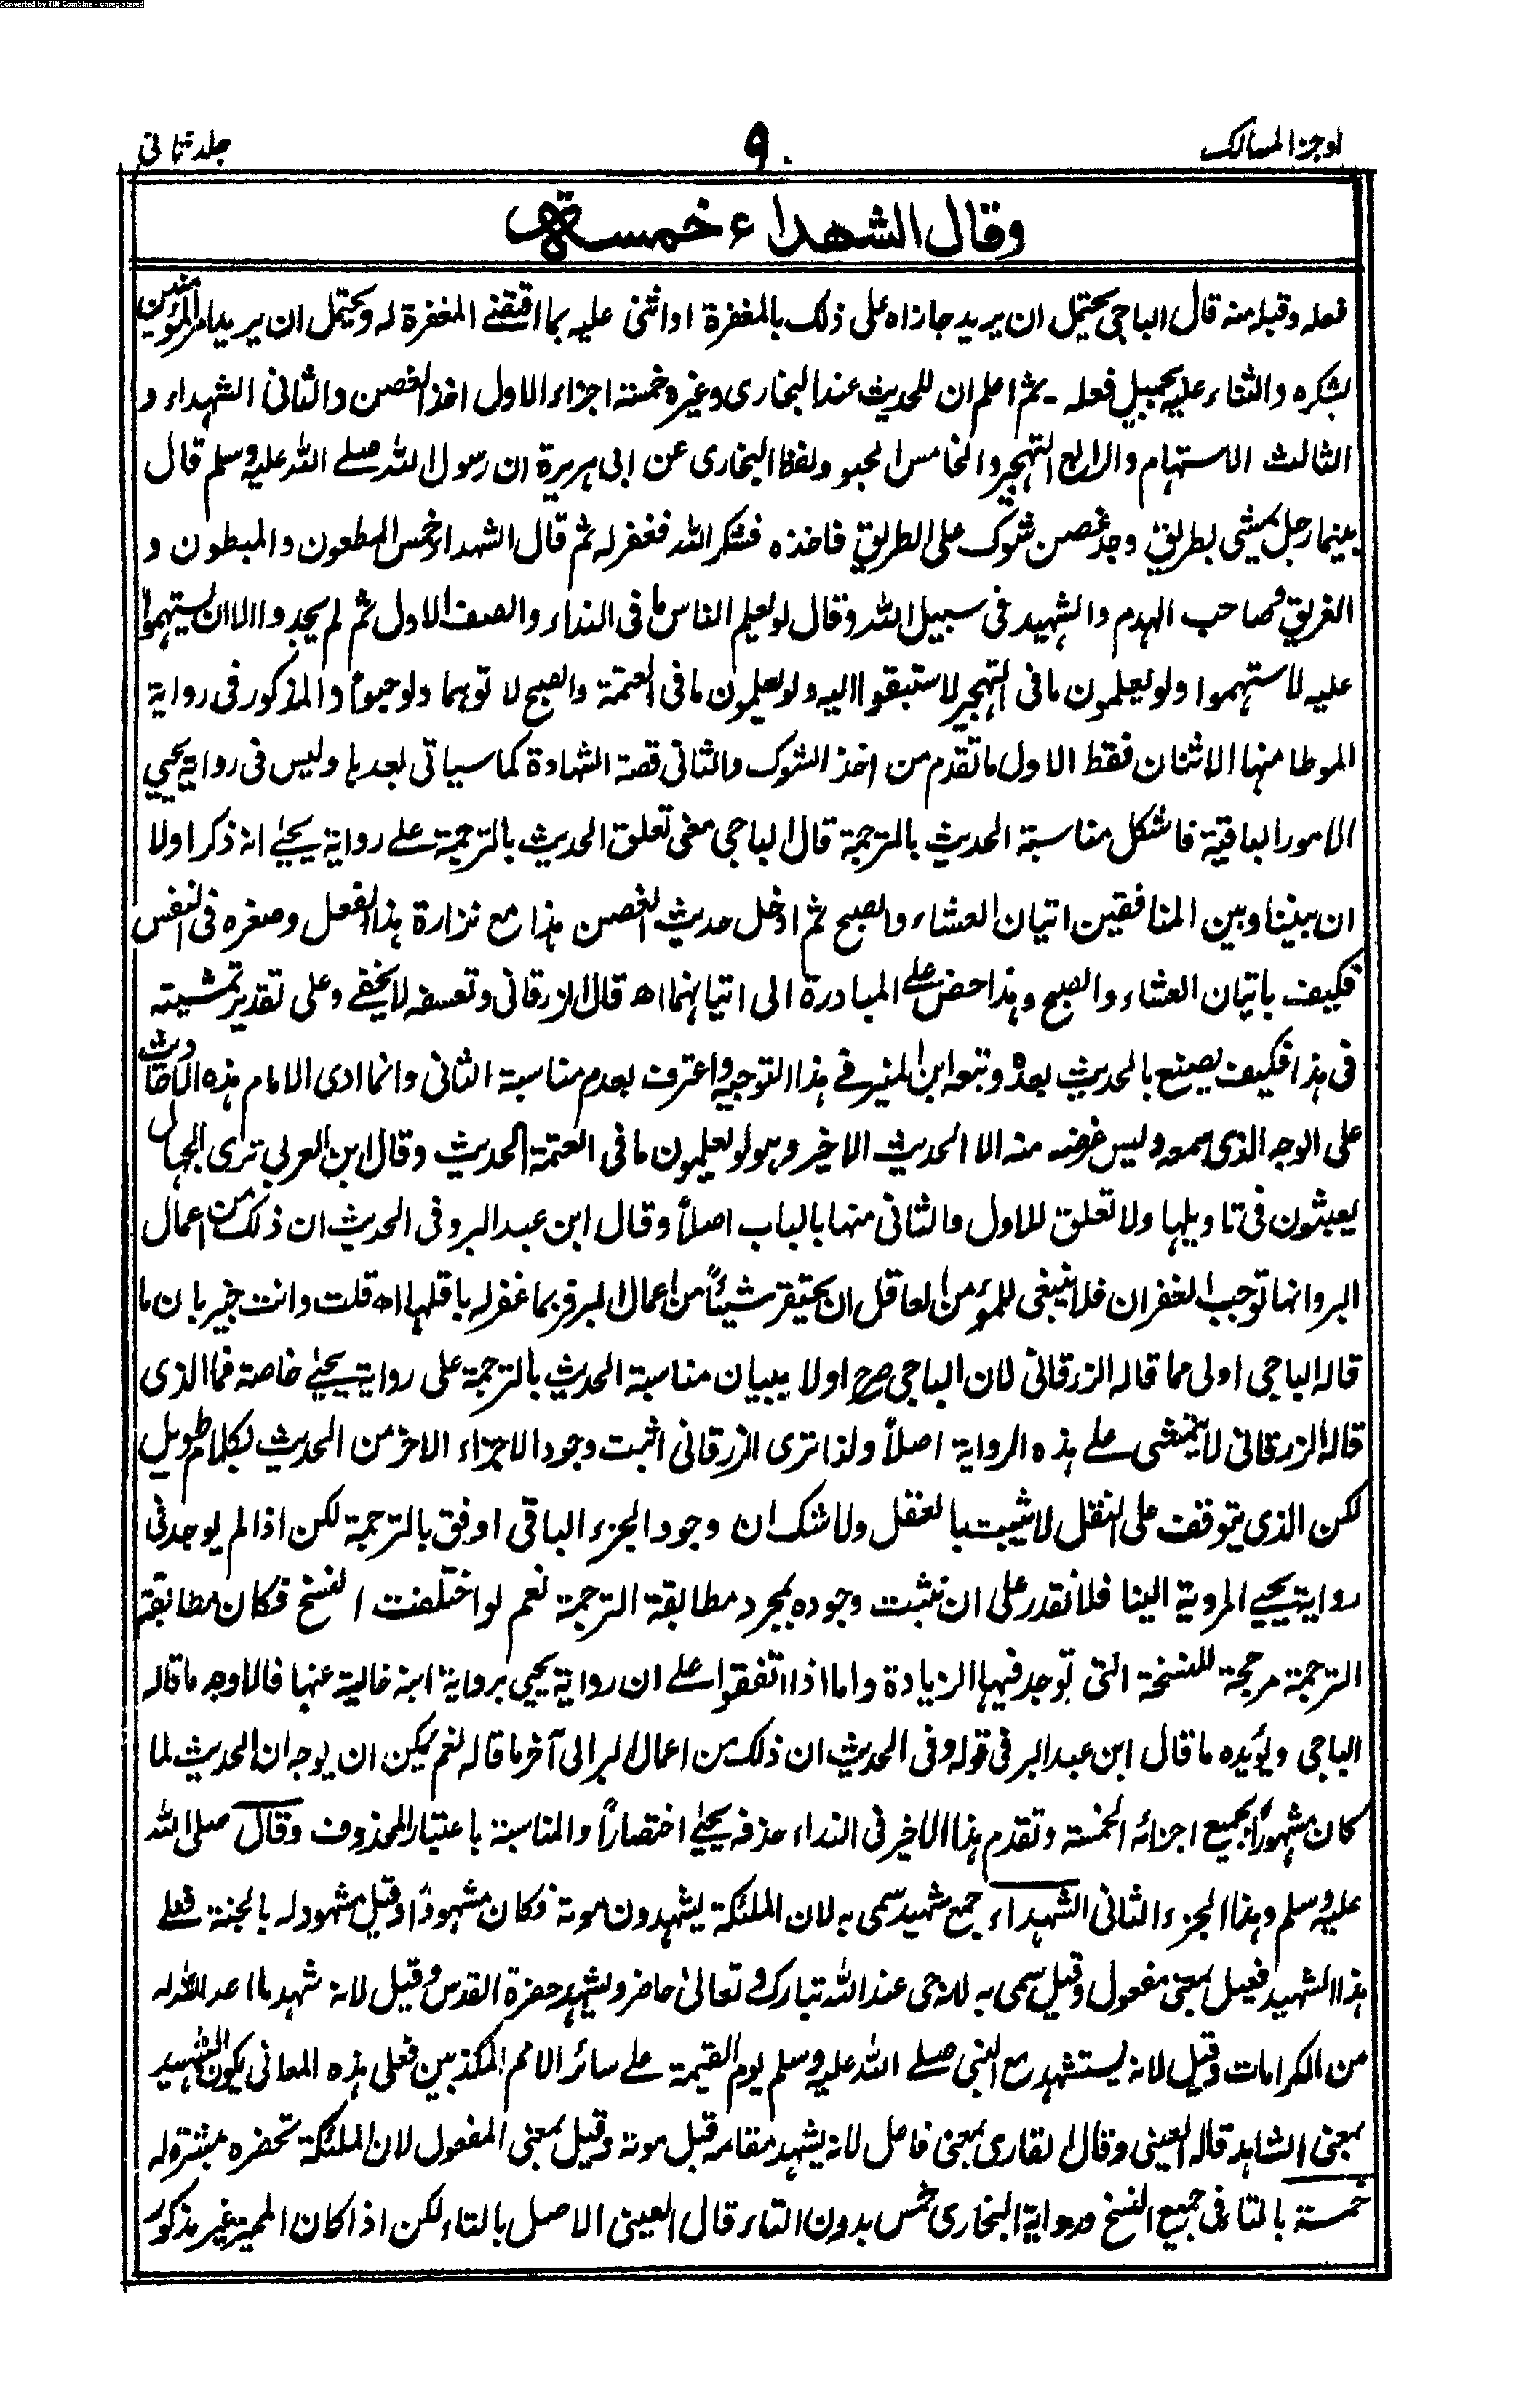 Converted by Tiff Combine - unregistered
اوجز المسالک
٩٠
جلد ثانی
وقال الشهداء خمسة
فعله وقبله منه قال الباجی يحتمل ان يريد جازاه علی ذلک بالمغفرة او اثنی عليه بما اقتضے المغفرة له ويحتمل ان يريد امر المؤمنين
بشکره والثناء عليه بجميل فعله ۔ ثم اعلم ان للحديث عند البخاری وغيره خمسة اجزاء الاول اخذ الغصن والثانی الشهداء و
الثالث الاستهام والرابع التهجير والخامس الحبو ولفظ البخاری عن ابی هريرة ان رسول الله صلے الله عليه وسلم قال
بينما رجل يمشی بطريق وجد غصن شوک علی الطريق فاخذه فشکر الله فغفر له ثم قال الشهداء خمس المطعون والمبطون و
الغريق وصاحب الهدم والشهيد فی سبيل الله وقال لو يعلم الناس ما فی النداء والصف الاول ثم لم يجدوا الا ان يستهموا
عليه لاستهموا ولو يعلمون ما فی التهجير لاستبقوا اليه ولو يعلمون ما فی العتمة والصبح لا توهما ولو حبوا والمذکور فی رواية
الموطا منها الاثنان فقط الاول ما تقدم من اخذ الشوک والثانی قصة الشهادة کما سياتی بعدها وليس فی رواية يحيی
الامور الباقية فاشکل مناسبة الحديث بالترجمة قال الباجی معنی تعلق الحديث بالترجمة علے رواية يحيٰے انه ذکر اولا
ان بيننا وبين المنافقين اتيان العشاء والصبح ثم ادخل حديث الغصن هذا مع نزارة هذا الفعل وصغره فی النفس
فکيف باتيان العشاء والصبح وهذا حض علے المبادرة الی اتيانهما اھ قال الزرقانی وتعسفه لا يخفے وعلی تقدير تمشيته
فی هذا فکيف يصنع بالحديث بعده وتبعه ابن المنير فے هذا التوجيه واعترف بعدم مناسبة الثانی وانما ادی الامام هذه الاحاديث
علی الوجه الذی سمعه وليس غرضه منه الا الحديث الاخير وهو لو يعلمون ما فی العتمة الحديث وقال ابن العربی تری الجهال
يعبثون فی تاويلها ولا تعلق للاول والثانی منها بالباب اصلاً وقال ابن عبد البر وفی الحديث ان ذلک من اعمال
البر وانها توجب الغفران فلا ينبغی للمؤمن العاقل ان يحتقر شيئاً من اعمال البر فربما غفر له باقلها اھ قلت وانت خبير بان ما
قاله الباجی اولی مما قاله الزرقانی لان الباجی صرح اولا ببيان مناسبة الحديث بالترجمة علی رواية يحيٰے خاصة فما الذی
قاله الزرقانی لا يتمشی علے هذه الرواية اصلاً ولذا تری الزرقانی اثبت وجود الاجزاء الاخر من الحديث بکلام طويل
لکن الذی يتوقف علی النقل لا يثبت بالعقل ولا شک ان وجود الجزء الباقی اوفق بالترجمة لکن اذا لم يوجد فی
رواية يحيے المروية الينا فلا نقدر علی ان نثبت وجوده بمجرد مطابقة الترجمة نعم لو اختلفت النسخ فکان مطابقة
الترجمة مرجحة للنسخة التی توجد فيها الزيادة واما اذا اتفقوا علے ان رواية يحيی برواية ابنه خالية عنها فالاوجه ما قاله
الباجی ويؤيده ما قال ابن عبد البر فی قوله وفی الحديث ان ذلک من اعمال البر الی آخر ما قاله نعم يمکن ان يوجه ان الحديث لما
کان مشهوراً بجميع اجزائه الخمسة وتقدم هذا الاخير فی النداء حذفه يحيٰے اختصاراً والمناسبة باعتبار المحذوف وقال صلی الله
عليه وسلم وهذا الجزء الثانی الشهداء جمع شهيد سمی به لان الملئکة يشهدون موته فکان مشهوداً وقيل مشهود له بالجنة فعلے
هذا الشهيد فعيل بمعنی مفعول وقيل سمی به لانه حی عند الله تبارک وتعالیٰ حاضر ويشهد حضرة القدس وقيل لانه شهد ما اعد الله له
من الکرامات وقيل لانه يستشهد مع النبی صلے الله عليه وسلم يوم القيمة علے سائر الامم المکذبين فعلی هذه المعانی يکون الشهيد
بمعنی الشاهد قاله العينی وقال القاری بمعنی فاعل لانه يشهد مقامه قبل موته وقيل بمعنی المفعول لان الملئکة تحضره مبشرة له
خمسة بالتاء فی جميع النسخ ورواية البخاری خمس بدون التاء قال العينی الاصل بالتاء لکن اذا کان المميز غير مذکور